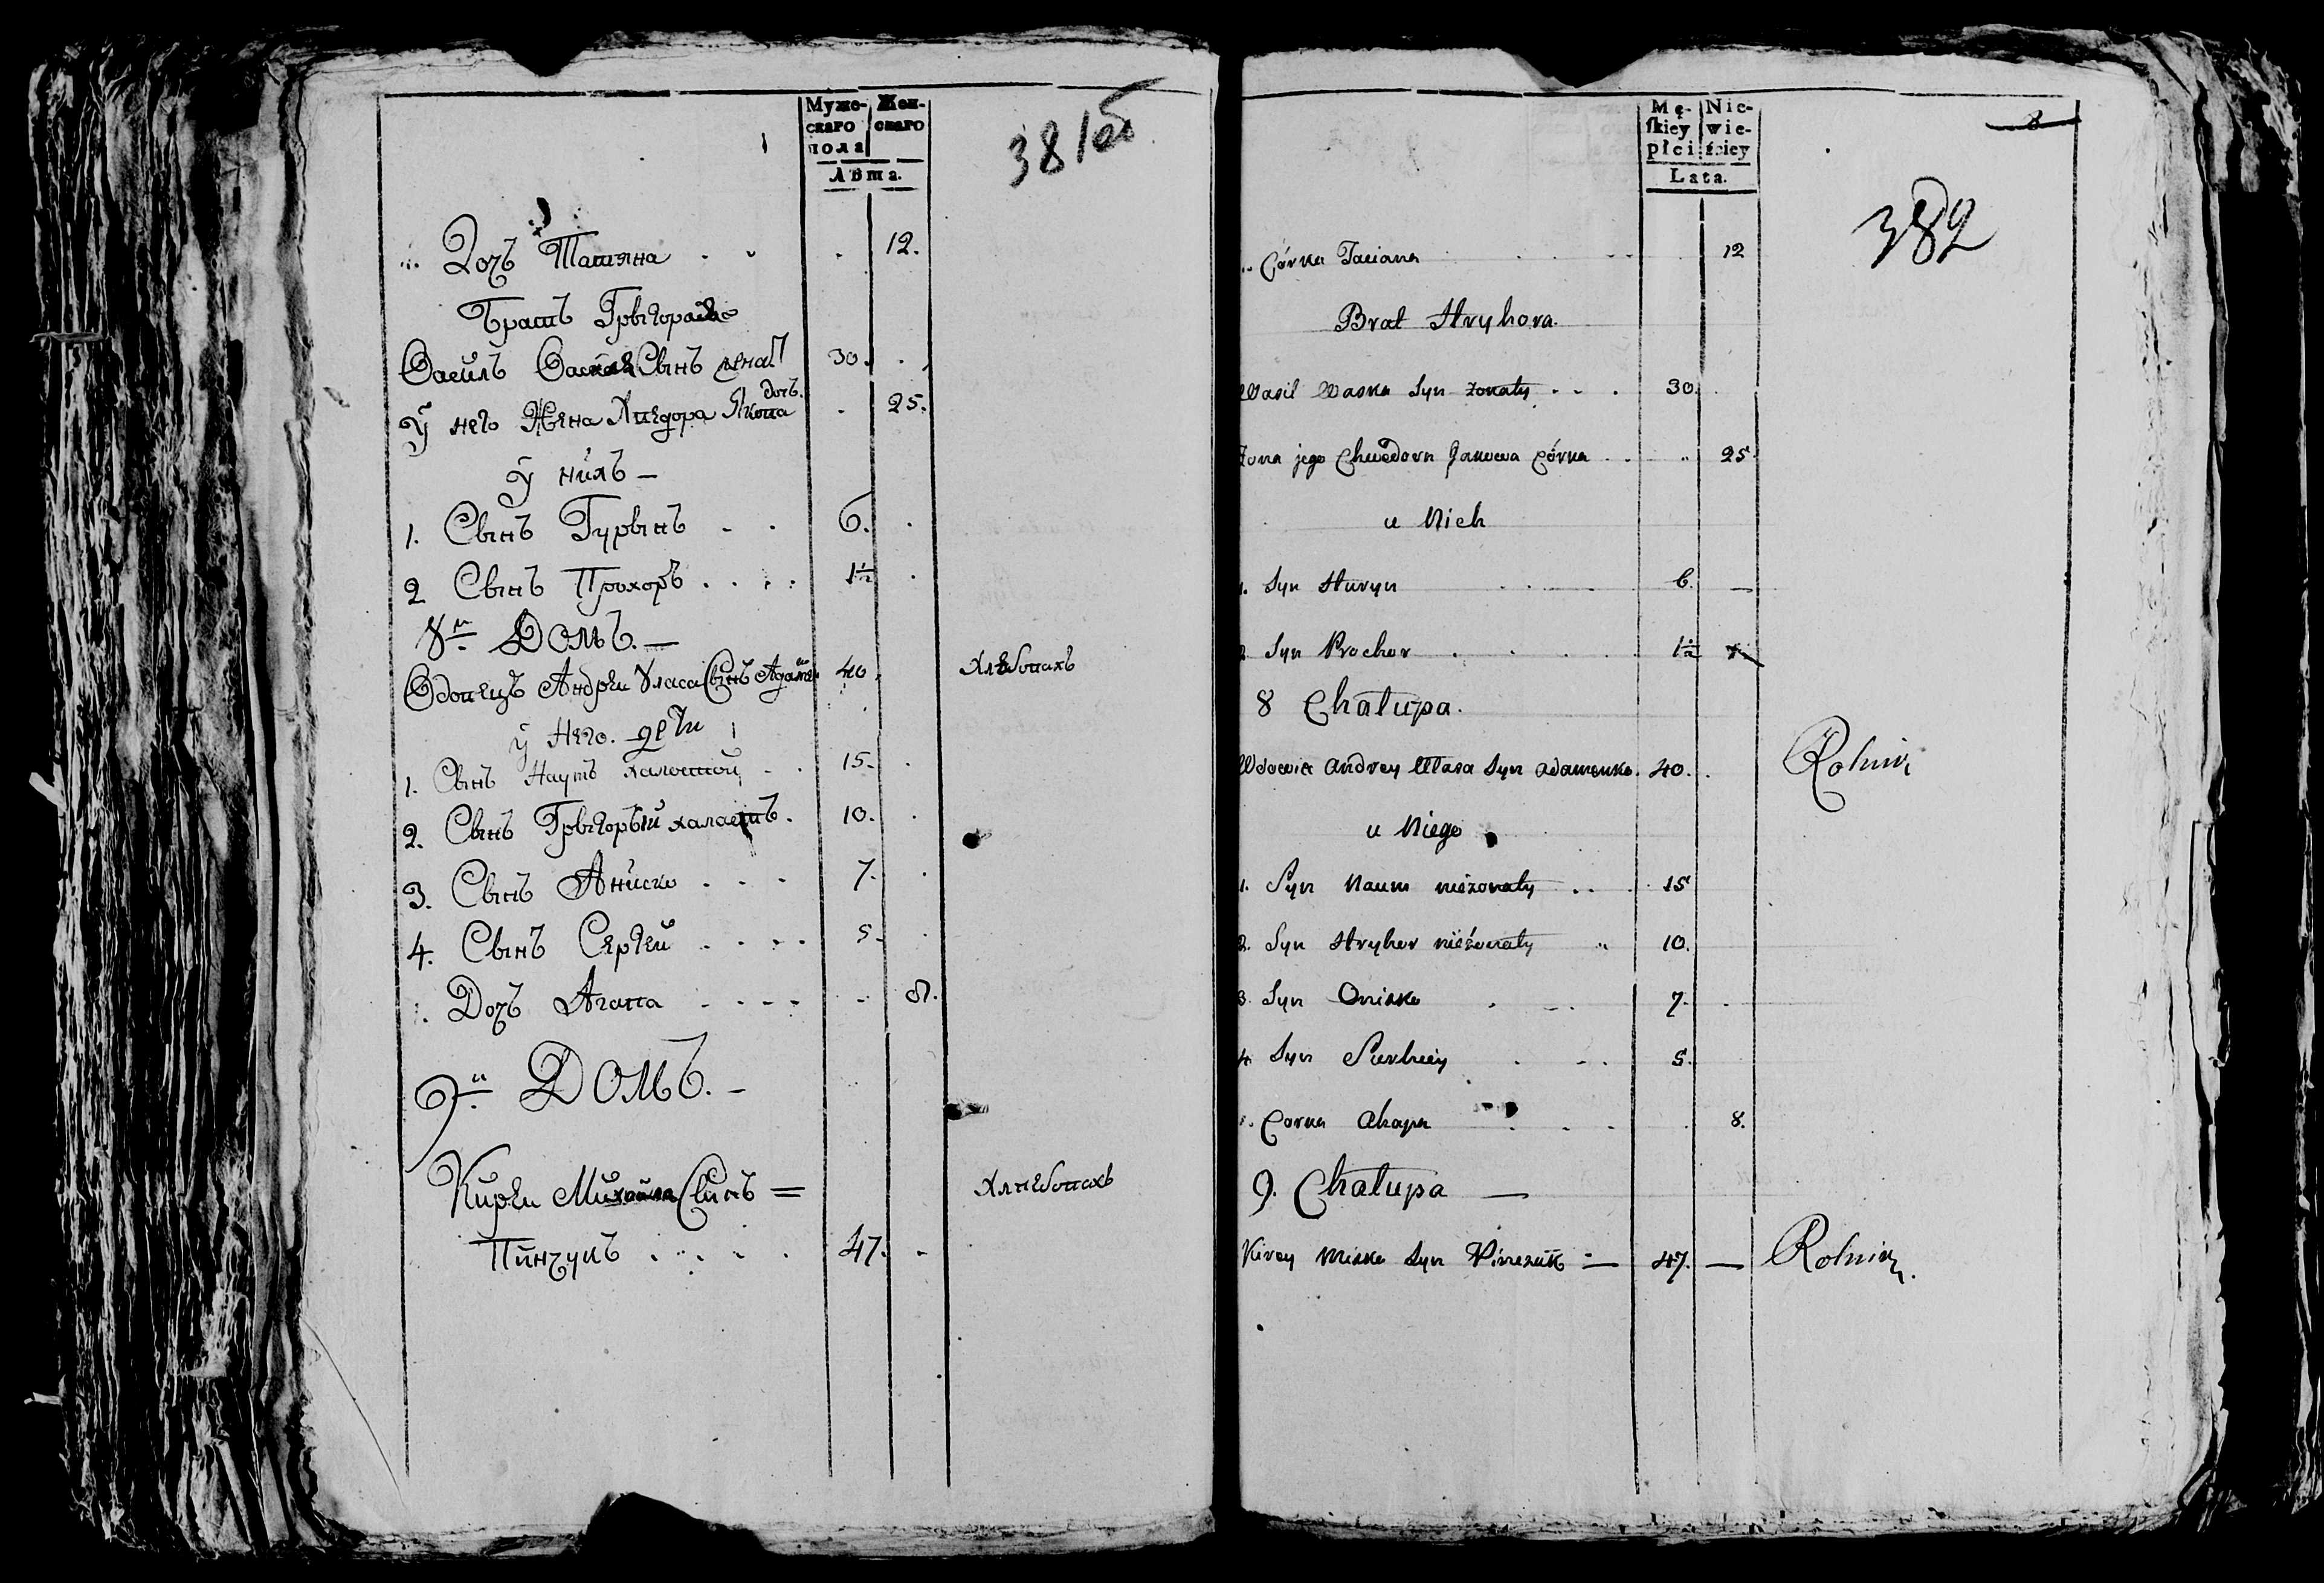 Муже-
скаго
пола
Жен-
скаго
Лѣта.
381об
Дочъ Татяна . . . 12.
Братъ Грыгора
Василъ Васка Сынъ жена 30.
дочъ.
У него Жена Хведора Якова . 25.
У нихъ —
1. Сынъ Гурынъ . . 6.
2 Сынъ Прохоръ . . . . 1½
8й Домъ. —
Вдовецъ Андреи Уласа Сынъ 40. Хлебопахъ
у Него. дети
1. Сынъ Наумъ халостой . . 15.
2. Сынъ Грыгорый халастъ. 10.
3. Сынъ Аниско . . . 7.
4. Сынъ Сергей . . . . 5.
Дочъ Агапа . . . . 8.
9й Домъ. —
Кирей Михайла Сынъ = Хлнебопахъ
Пинчукъ . . . . 47.
Mę-
ſkiey
płci
Nie-
wie-
ściey
Lata.
8
382
Córka Taciana 12
Brat Hryhora.
Wasil Waska Syn żonaty . . . 30.
Żona jego Chwedora Jakowa Córka . . 25.
u Nich
1. Syn Huryn 6. —
2 Syn Prochor . . . . 1½
8 Chałupa.
Wdowiec Andrey Ułasa Syn Adamenko. 40. Rolnik
u Niego
1. Syn Naum nieżonaty . . . 15
2. Syn Hryhor nieżonaty 10.
3. Syn Onisko . . . 7.
4. Syn Serhiey . . . 5.
Corka Ahapa . . . 8.
9. Chałupa —
Kirey Miska Syn Pinczuk = 47. — Rolnik.